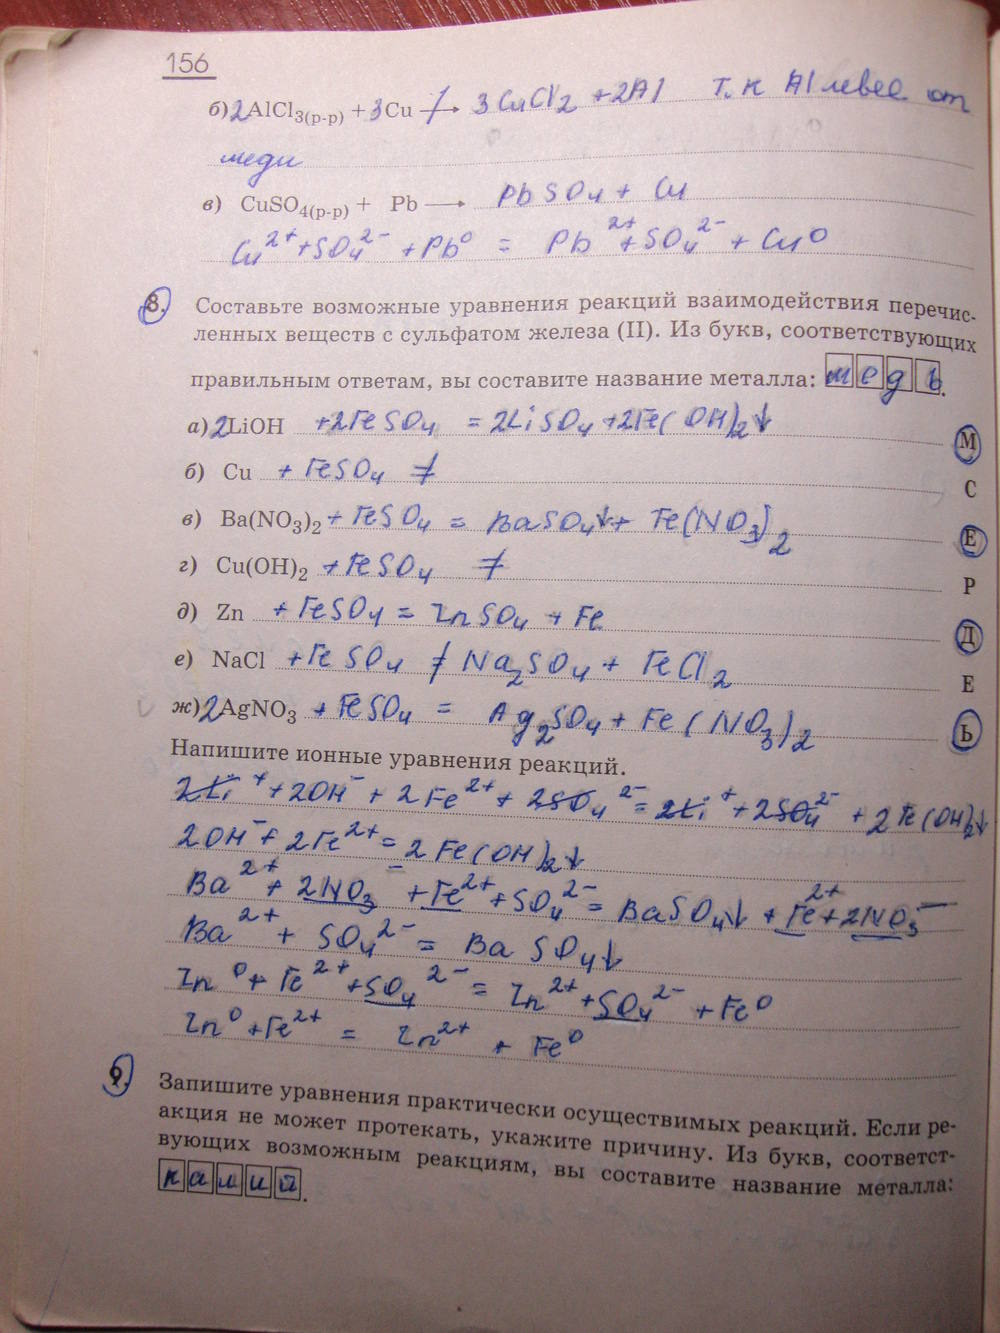 156
б) 2AlCl3(р-р) + 3Cu ⟶̸ 3CuCl2 + 2Al т.к Al левее от
меди
в) CuSO4(р-р) + Pb ⟶ PbSO4 + Cu
Cu²⁺ + SO4²⁻ + Pb⁰ = Pb²⁺ + SO4²⁻ + Cu⁰
8. Составьте возможные уравнения реакций взаимодействия перечис-
ленных веществ с сульфатом железа (II). Из букв, соответствующих
правильным ответам, вы составите название металла: медь.
а) 2LiOH + 2FeSO4 = 2LiSO4 + 2Fe(OH)2↓ М
б) Cu + FeSO4 ≠ С
в) Ba(NO3)2 + FeSO4 = BaSO4↓ + Fe(NO3)2 Е
г) Cu(OH)2 + FeSO4 ≠ Р
д) Zn + FeSO4 = ZnSO4 + Fe Д
е) NaCl + FeSO4 ≠ Na2SO4 + FeCl2 Е
ж) 2AgNO3 + FeSO4 = Ag2SO4 + Fe(NO3)2 Ь
Напишите ионные уравнения реакций.
2Li⁺ + 2OH⁻ + 2Fe²⁺ + 2SO4²⁻ = 2Li⁺ + 2SO4²⁻ + 2Fe(OH)2↓
2OH⁻ + 2Fe²⁺ = 2Fe(OH)2↓
Ba²⁺ + 2NO3⁻ + Fe²⁺ + SO4²⁻ = BaSO4↓ + Fe²⁺ + 2NO3⁻
Ba²⁺ + SO4²⁻ = BaSO4↓
Zn⁰ + Fe²⁺ + SO4²⁻ = Zn²⁺ + SO4²⁻ + Fe⁰
Zn⁰ + Fe²⁺ = Zn²⁺ + Fe⁰
9. Запишите уравнения практически осуществимых реакций. Если ре-
акция не может протекать, укажите причину. Из букв, соответст-
вующих возможным реакциям, вы составите название металла:
калий.